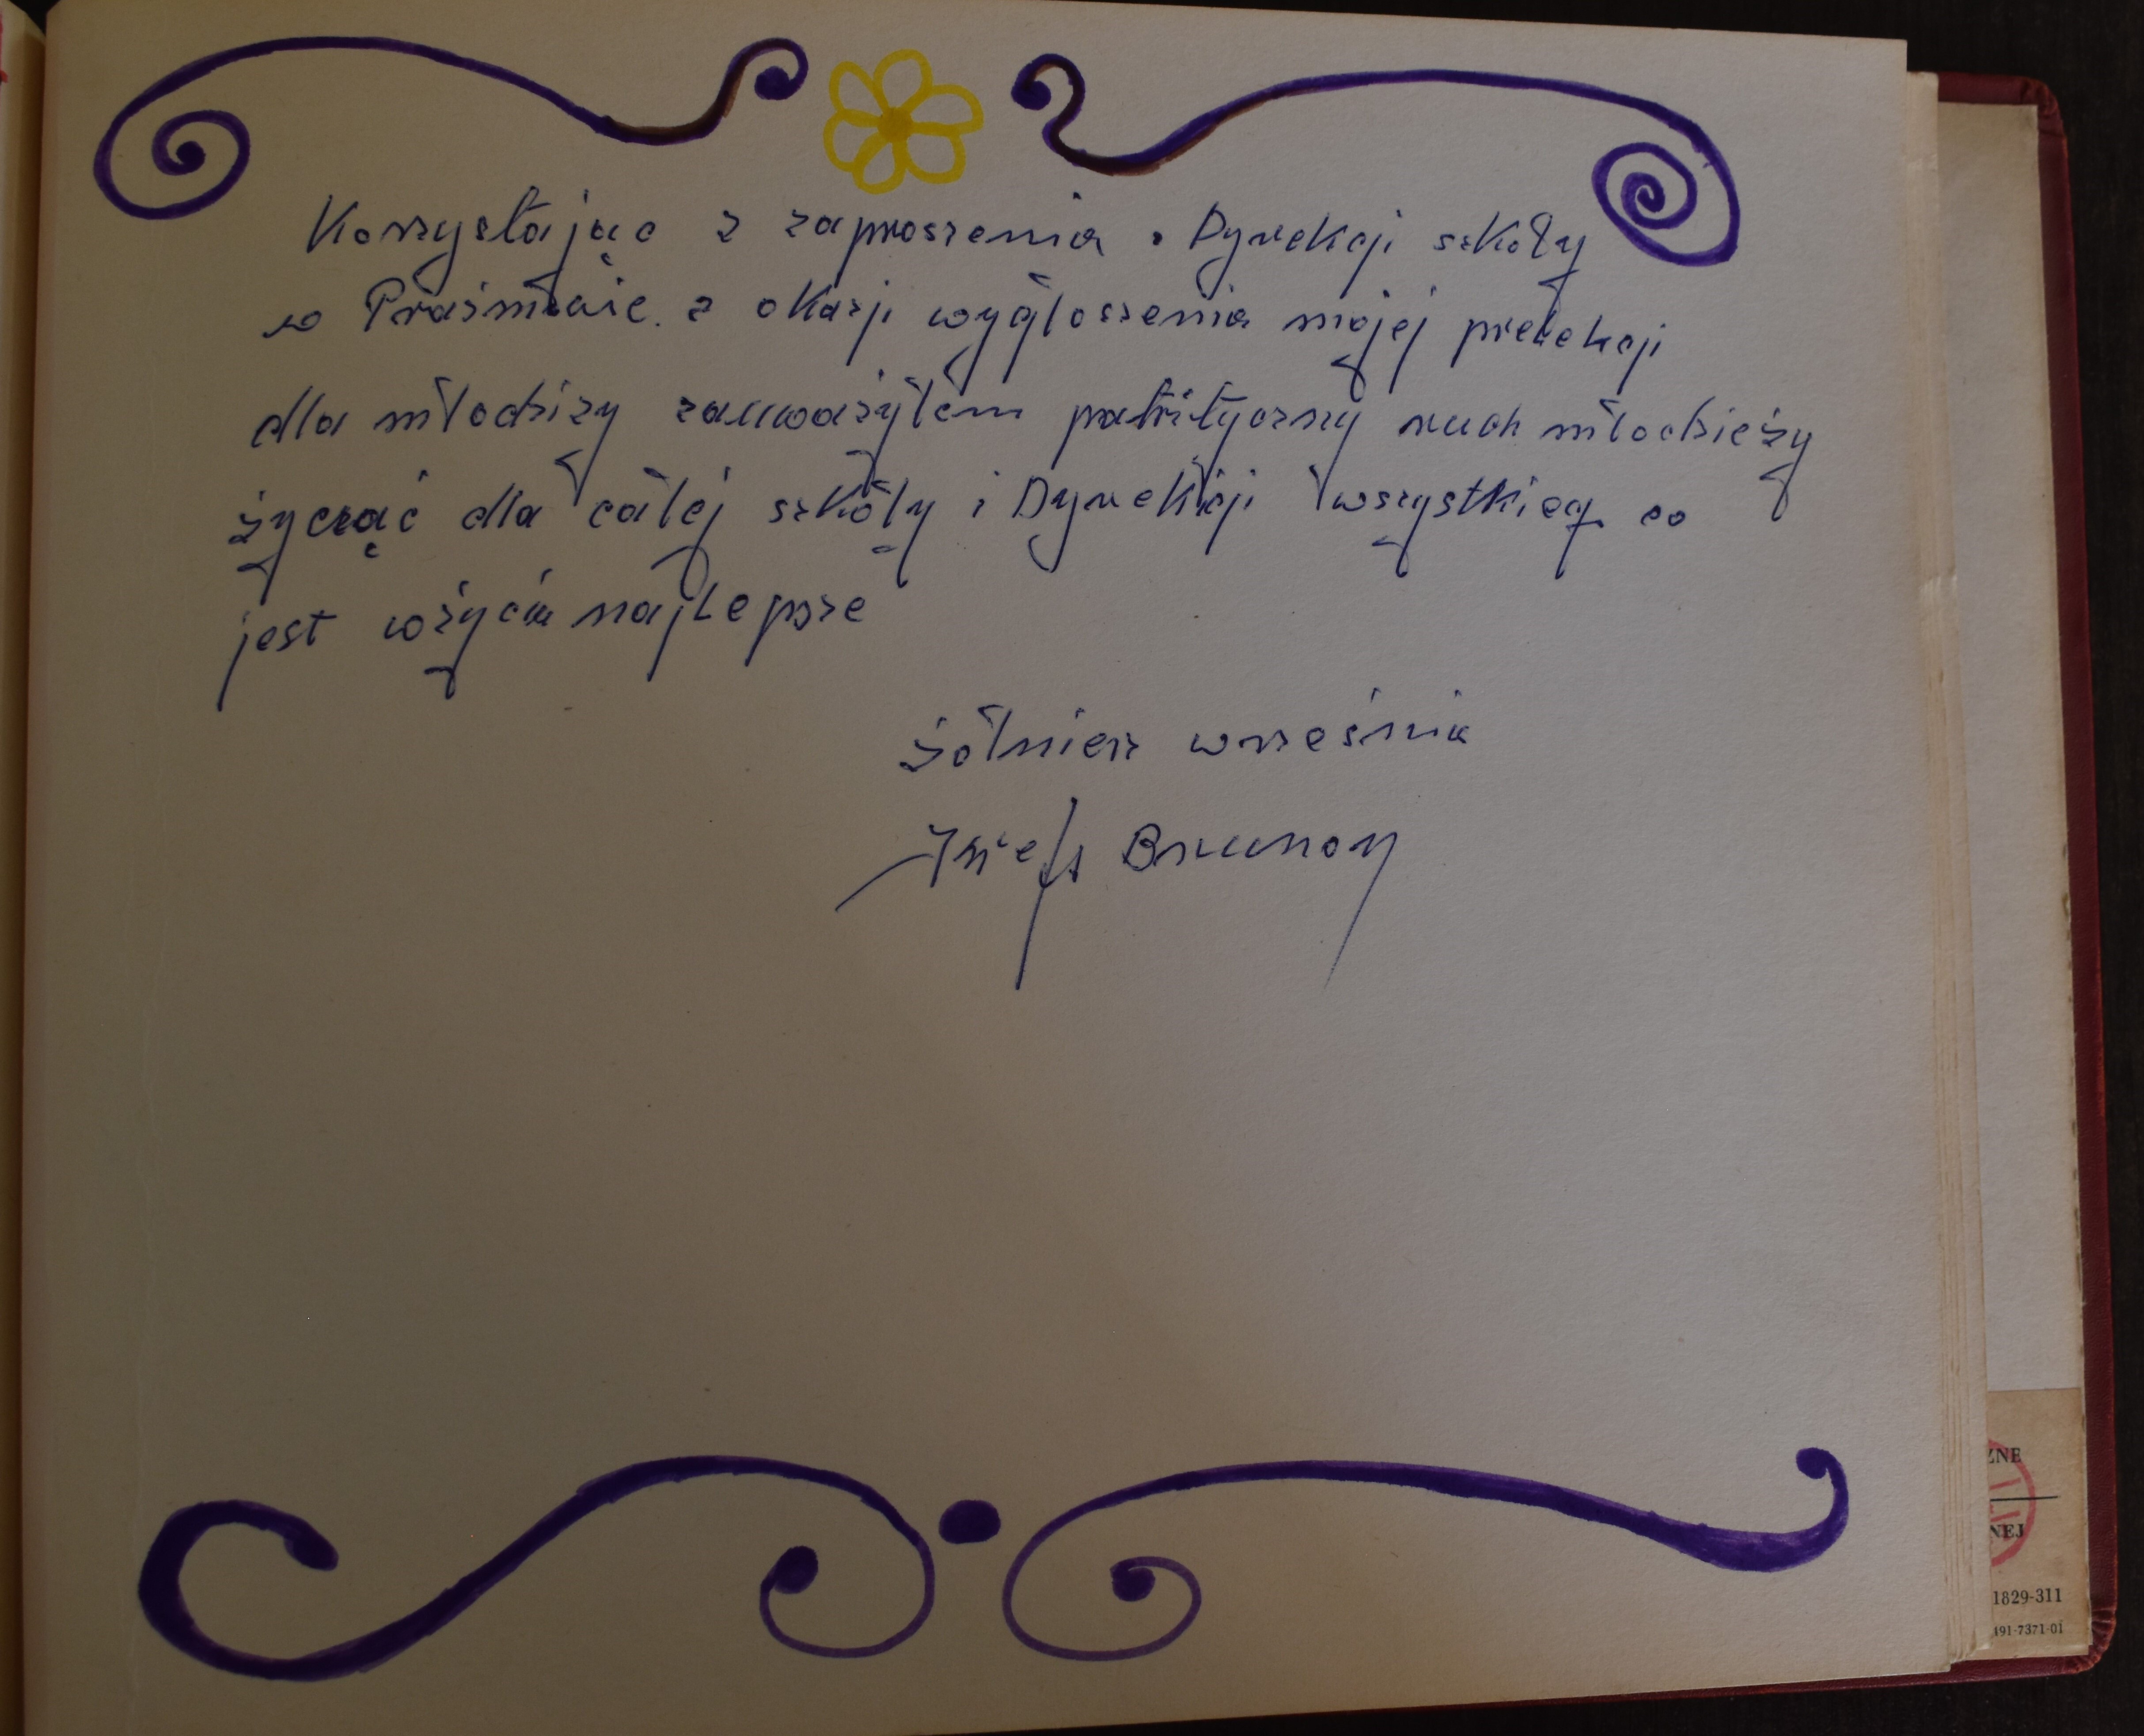 Korzystając z zaproszenia Dyrekcji szkoły
w z okazji wygłoszenia mojej prelekcji
dla młodziży zauważyłem patritycrzny ruch młodzieży
życząć dla całej szkóły i Dyrekcji wszystkieg co
jest wżyciu najlepsze
żółnierz wreśnia
Józef
ZNE
NEJ
1829-311
491-7371-01